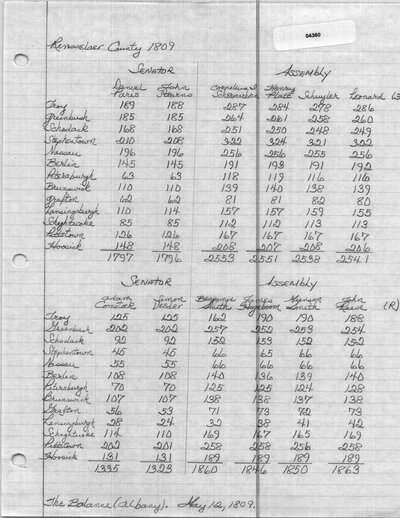 04360
Rensselaer County 1809
Senator Assembly
Daniel Paris John Stearns Cornelius I Schermerhorn Henry Platt Schuyler Leonard
Troy 189 188 287 284 278 286
Greenbush 185 185 264 261 258 260
Schodack 168 168 251 250 248 249
Stephentown 210 208 322 324 321 302
Nassau 196 196 256 256 255 256
Berlin 145 145 191 193 191 192
Petersburgh 63 63 118 119 116 116
Brunswick 110 110 139 140 138 139
Grafton 62 62 81 81 82 80
Lansingburgh 110 114 157 157 159 155
Schghticoke 85 85 112 112 113 113
Pittstown 126 126 167 167 167 167
Hoosick 148 148 208 207 208 206
1797 1796 2553 2551 2538 2541
Senator Assembly
Adam Comstock Simon Veeder Smith James Smith John Reeve (R)
Troy 125 125 162 190 190 188
Greenbush 202 202 257 252 253 254
Schodack 92 92 152 153 152 152
Stephentown 45 45 66 65 66 66
Nassau 55 55 66 66 66 66
Berlin 108 108 140 136 139 140
Petersburgh 70 70 125 125 124 128
Brunswick 107 107 138 138 137 138
Grafton 56 53 71 73 72 73
Lansingburgh 28 24 32 38 41 42
Schghticoke 114 110 169 167 165 169
Pittstown 202 201 258 258 256 258
Hoosick 131 131 189 189 189 189
1335 1323 1860 1846 1850 1863
The Balance (Albany). May 12, 1809.